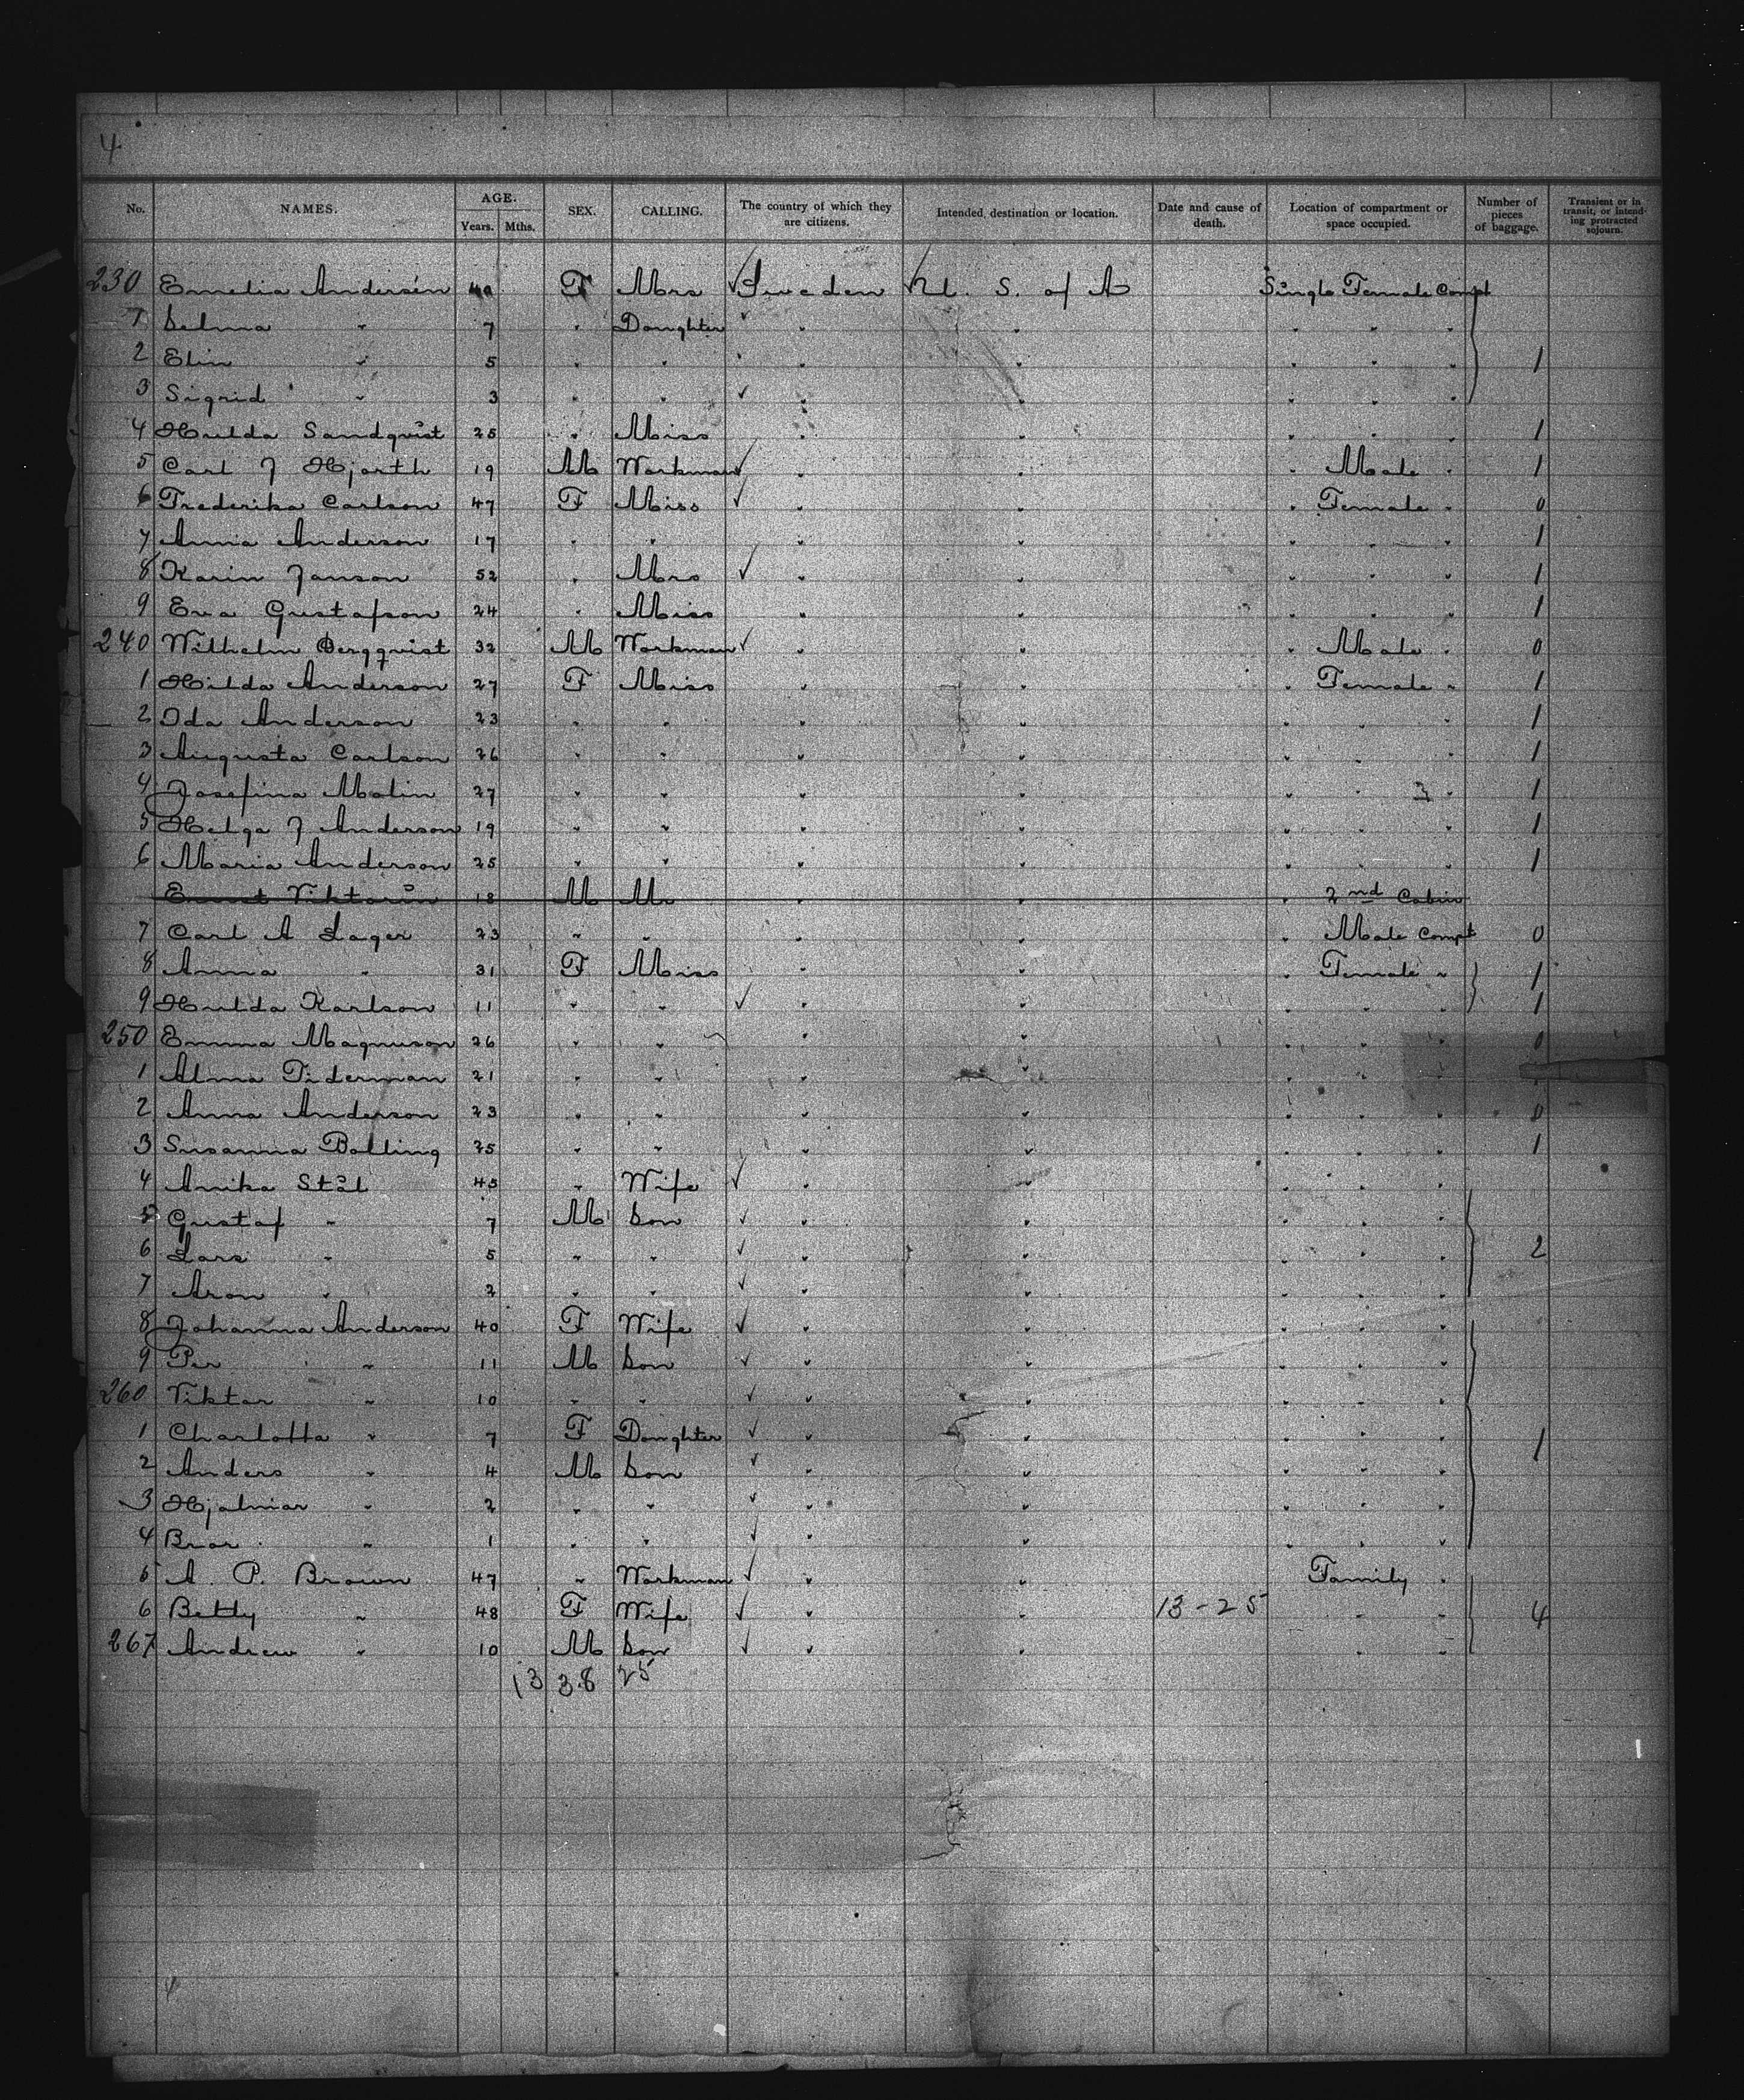 4
No. NAMES. AGE. Years. Mths. SEX. CALLING. The country of which they are citizens. Intended destination or location. Date and cause of death. Location of compartment or space occupied. Number of pieces of baggage. Transient or in transit, or intending protracted sojourn.
230 Emelia Andersén F Mrs Sweden U. S. of A Single Female Compt
Selma " 7 " Daughter " " " " "
2 Elin " 5 " " " " " " " 1
3 Sigrid " 3 " " " " " " "
4 Hulda Sandqvist 25 " Miss " " " " " 1
5 Carl J Hjorth 19 M Workman " " " Male " 1
6 Frederika Carlson 47 F Miss " " " Female " 0
7 Anna Anderson 17 " " " " " " " 1
8 Karin Janson 52 " Mrs " " " " " 1
9 Eva Gustafson 24 " Miss " " " " " 1
240 Wilhelm Bergqvist 32 M Workman " " " Male " 0
1 Hilda Anderson 27 F Miss " " " Female " 1
2 Ida Anderson 23 " " " " " " " 1
3 Augusta Carlson 26 " " " " " " " 1
4 Josefina Malin 27 " " " " " " 3 " 1
5 Helga J Anderson 19 " " " " " " " 1
6 Maria Anderson 25 " " " " " " " 1
Ernst Viktorin 18 M Mr " " " 2nd Cabin
7 Carl A Lager 23 " " " " " Male Compt 0
8 Anna " 31 F Miss " " " Female " 1
9 Hulda Karlson 11 " " " " " " " 1
250 Emma Magnuson 26 " " " " " " " 0
1 Alma Tiderman 21 " " " " " " "
2 Anna Anderson 23 " " " " " " " 0
3 Susanna Bolling 25 " " " " " " " 1
4 Anika Stål 45 " Wife " " " " "
5 Gustaf " 7 M Son " " " " "
6 Lars " 5 " " " " " " " 2
7 Aron " 2 " " " " " " "
8 Johanna Anderson 40 F Wife " " " " "
9 Per " 11 M Son " " " " "
260 Viktor " 10 " " " " " " "
1 Charlotta " 7 F Daughter " " " " " 1
2 Anders " 4 M Son " " " " "
3 Hjalmar " 2 " " " " " " "
4 Bror " 1 " " " " " " "
5 A. P. Brown 47 " Workman " " Family "
6 Betty " 48 F Wife " " 13-25 " " 4
267 Andrew " 10 M Son " " " "
13 38 25